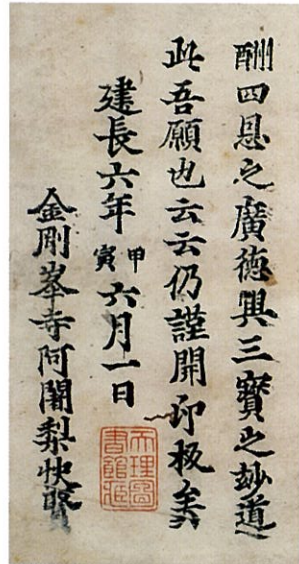 酬四恩之廣德興三寶之妙道
此吾願也云云仍謹開印板矣
建長六年甲寅六月一日
金剛峯寺阿闍梨快賢
天理圖書館藏